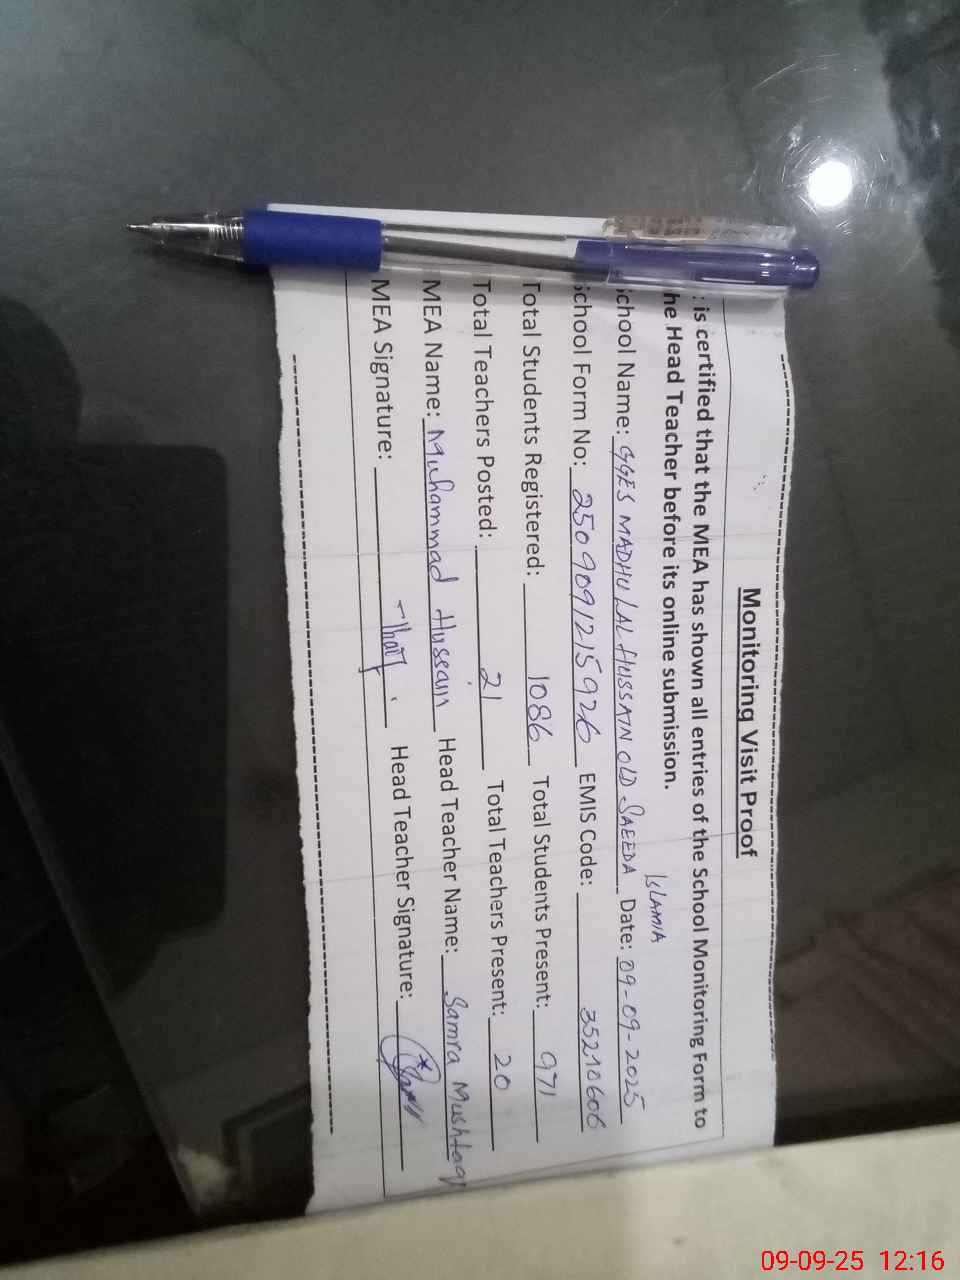 Monitoring Visit Proof
is certified that the MEA has shown all entries of the School Monitoring Form to
he Head Teacher before its online submission.
ISLAMIA
chool Name: GGES MADHU LAL HUSSAIN OLD SAEEDA Date: 09-09-2025
School Form No: 2509091215926 EMIS Code: 35210606
Total Students Registered: 1086 Total Students Present: 971
Total Teachers Posted: 21 Total Teachers Present: 20
MEA Name: Muhammad Hussain Head Teacher Name: Samra Mushtaq
MEA Signature: Head Teacher Signature:
09-09-25 12:16